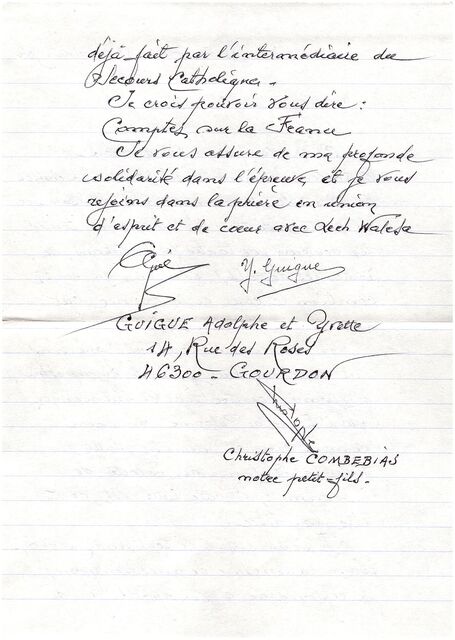 déjà fait par l'intermédiaire du
Secours Catholique.
Je crois pouvoir vous dire :
Comptez sur la France
Je vous assure de ma profonde
solidarité dans l'épreuve, et je vous
rejoins dans la prière en union
d'esprit et de coeur avec Lech Walesa
Y. Guigue
GUIGUE Adolphe et Yvette
14, Rue des Roses
46300 - GOURDON
Christophe
Christophe COMBEBIAS
notre petit-fils.